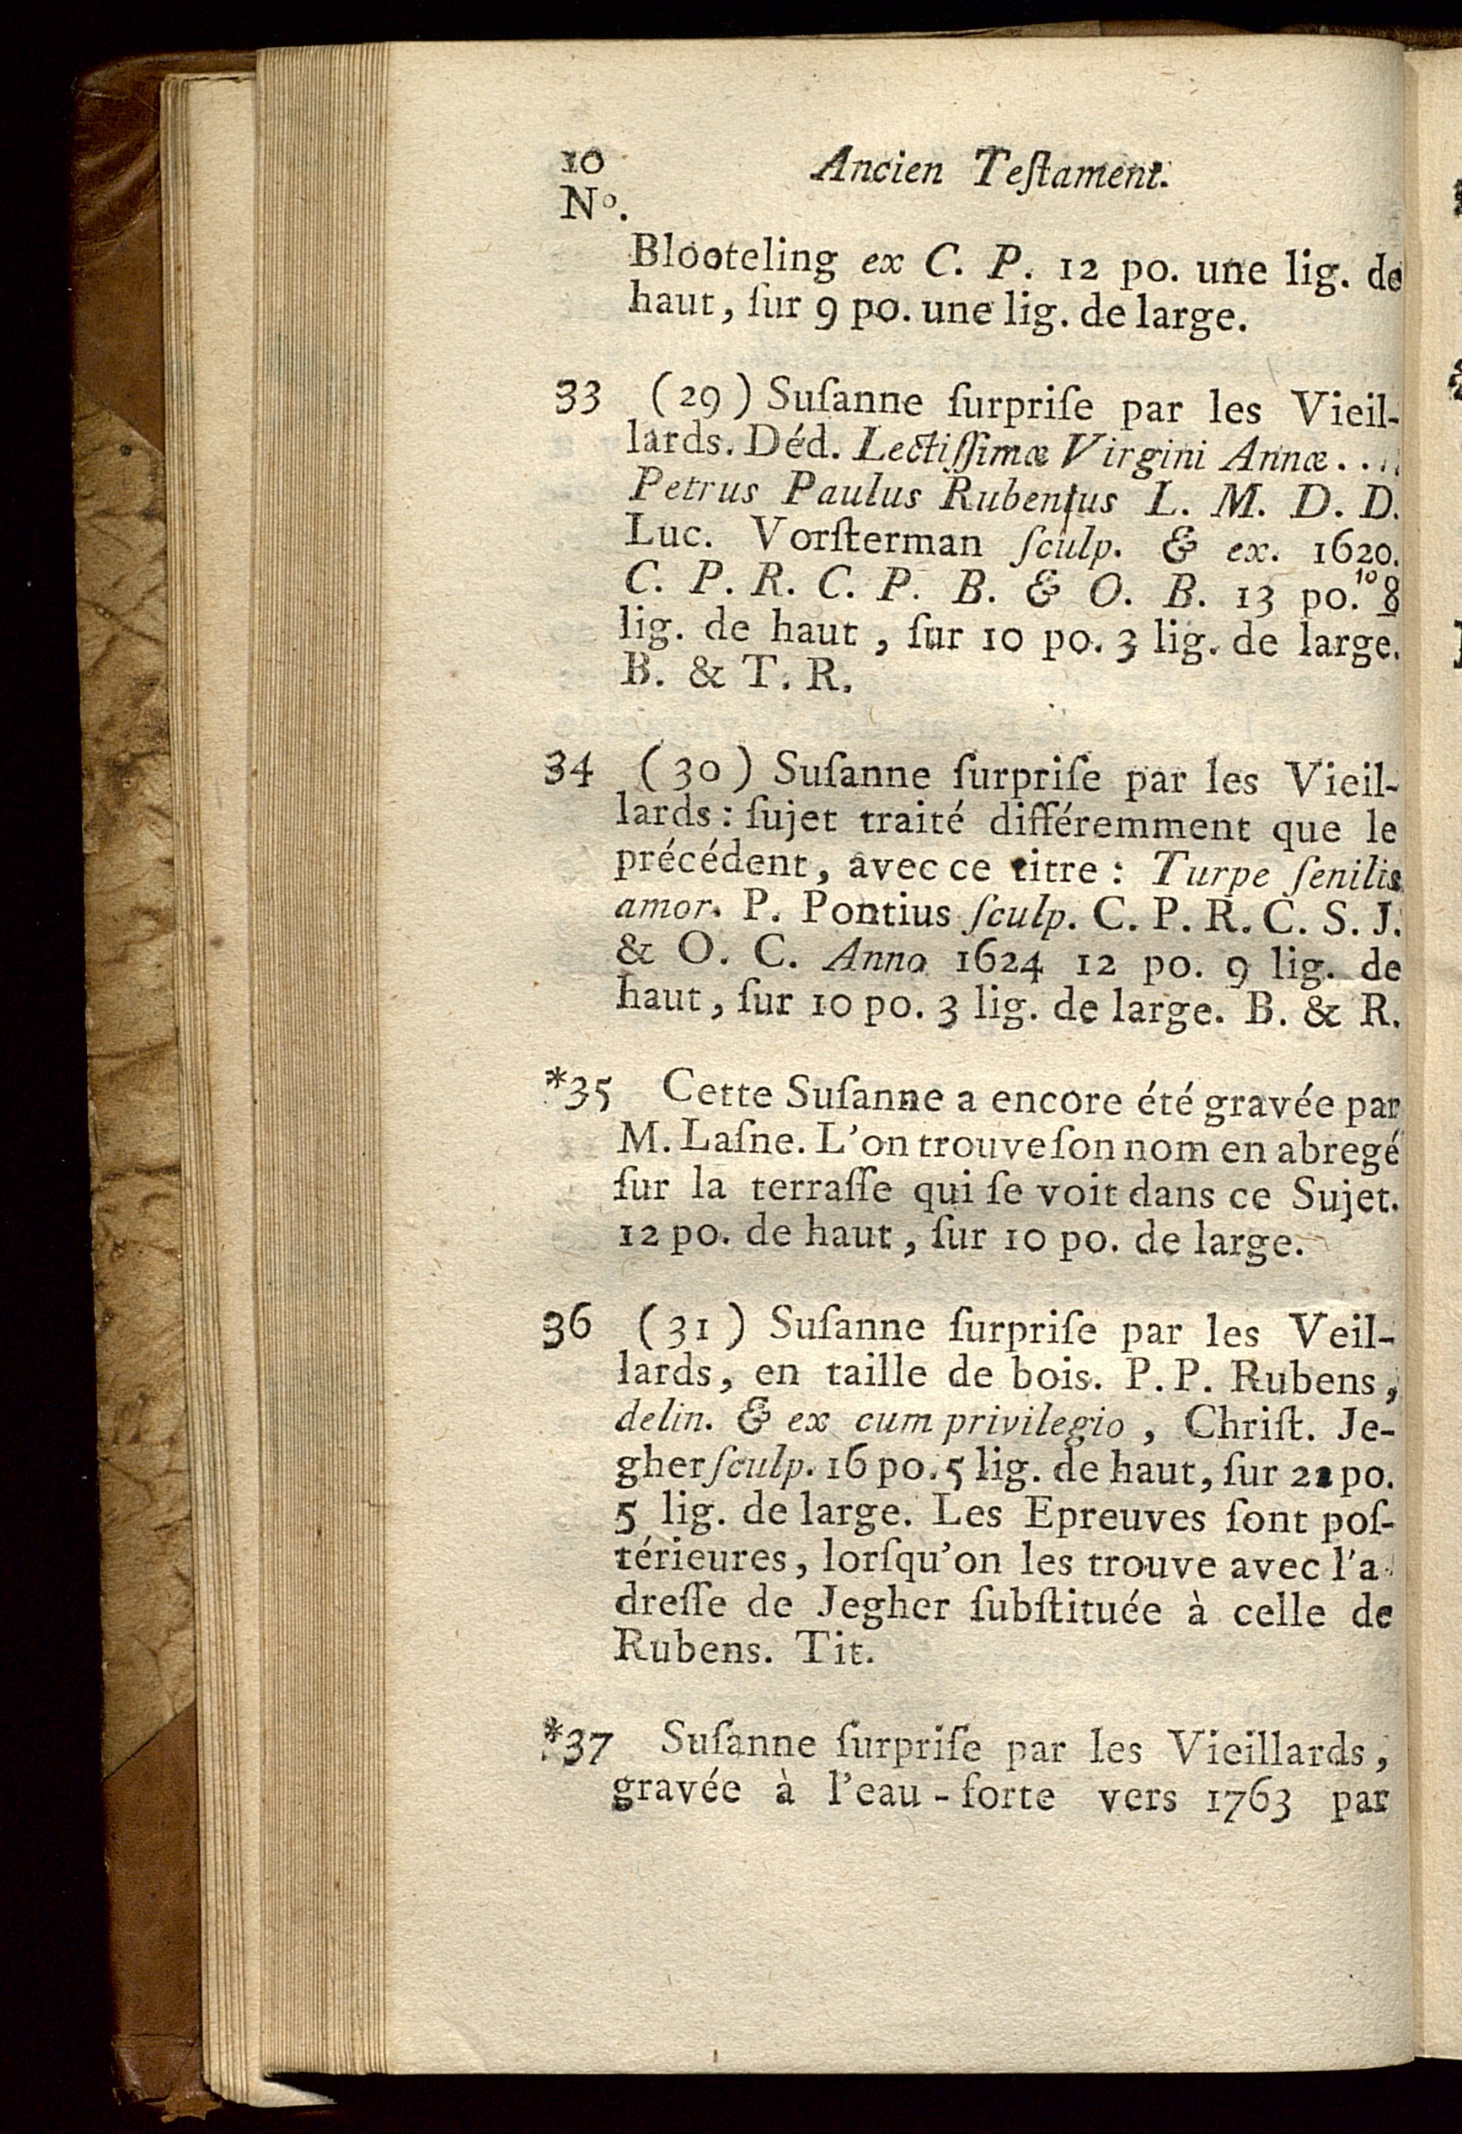 10 Ancien Teſtament.
Nº.
Blooteling ex C. P. 12 po. une lig. de
haut, ſur 9 po. une lig. de large.
33 (29) Suſanne ſurpriſe par les Vieil-
lards. Déd. Lectiſſimæ Virgini Annæ...
Petrus Paulus Rubenius L. M. D. D.
Luc. Vorſterman ſculp. & ex. 1620.
C. P. R. C. P. B. & O. B. 13 po. 10 8
lig. de haut, ſur 10 po. 3 lig. de large.
B. & T. R.
34 (30) Suſanne ſurpriſe par les Vieil-
lards : ſujet traité différemment que le
précédent, avec ce titre : Turpe ſenilis
amor. P. Pontius ſculp. C. P. R. C. S. J.
& O. C. Anno 1624 12 po. 9 lig. de
haut, ſur 10 po. 3 lig. de large. B. & R.
*35 Cette Suſanne a encore été gravée par
M. Laſne. L'on trouve ſon nom en abregé
ſur la terraſſe qui ſe voit dans ce Sujet.
12 po. de haut, ſur 10 po. de large.
36 (31) Suſanne ſurpriſe par les Veil-
lards, en taille de bois. P. P. Rubens,
delin. & ex cum privilegio, Chriſt. Je-
gher ſculp. 16 po. 5 lig. de haut, ſur po.
5 lig. de large. Les Epreuves ſont poſ-
térieures, lorſqu'on les trouve avec l'a-
dreſſe de Jegher ſubſtituée à celle de
Rubens. Tit.
*37 Suſanne ſurpriſe par les Vieillards,
gravée à l'eau-forte vers 1763 par